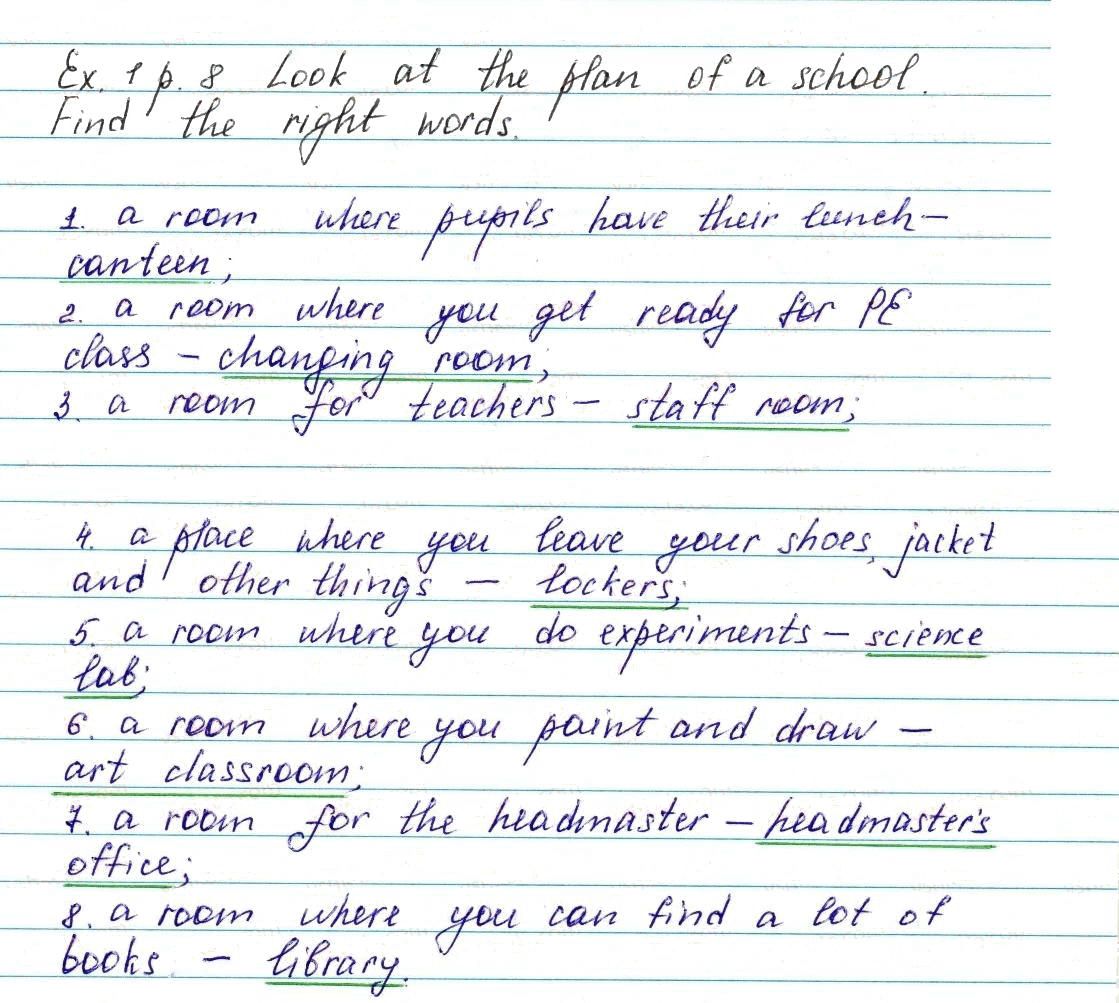 Ex. 1 p. 8 Look at the plan of a school.
Find the right words.
1. a room where pupils have their lunch –
canteen;
2. a room where you get ready for PE
class – changing room;
3. a room for teachers – staff room;
4. a place where you leave your shoes, jacket
and other things – lockers;
5. a room where you do experiments – science
lab;
6. a room where you paint and draw –
art classroom;
7. a room for the headmaster – headmaster's
office;
8. a room where you can find a lot of
books. – library.